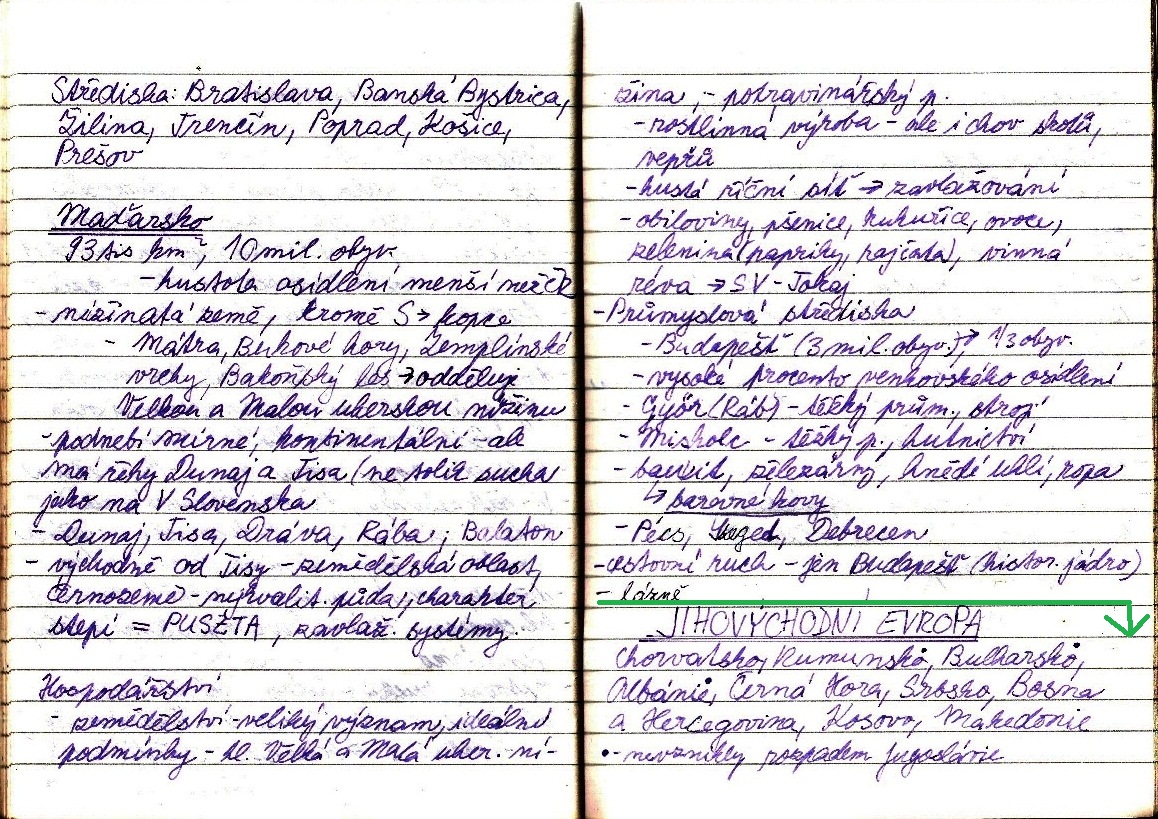 Střediska: Bratislava, Banská Bystrica,
Žilina, Trenčín, Poprad, Košice,
Prešov
Maďarsko
93 tis km², 10 mil. obyv.
- hustota osídlení menší než ČR
- nížinatá země, kromě S → kopce
- Mátra, Bukové hory, Zemplínské
vrchy, Bakoňský les → odděluje
Velkou a Malou uherskou nížinu
- podnebí mírné, kontinentální - ale
má řeky Dunaj a Tisa (ne tolik sucha
jako na V Slovenska
- Dunaj, Tisa, Dráva, Rába; Balaton
- východně od Tisy - zemědělská oblast,
černozemě - nejkvalit. půda, charakter
stepí = PUSZTA, zavlaž. systémy.
Hospodářství
- zemědělství - veliký význam, ideální
podmínky - hl. Velká a Malá uher. ní-
žina, - potravinářský p.
- rostlinná výroba - ale i chov skotu,
vepřů
- hustá říční síť → zavlažování
- obiloviny, pšenice, kukuřice, ovoce,
zelenina (papriky, rajčata), vinná
réva → SV - Tokaj
- Průmyslová střediska
- Budapešť (3 mil. obyv.) → 1/3 obyv.
- vysoké procento venkovského osídlení
- Győr (Ráb) - těžký prům., stroj
- Miskolc - těžký p., hutnictví
- bauxit, železárny, hnědé uhlí, ropa
↳ barevné kovy
- Pécs, Szeged, Debrecen
- cestovní ruch - jen Budapešť (histor. jádro)
- lázně
- JIHOVÝCHODNÍ EVROPA
Chorvatsko, Rumunsko, Bulharsko,
Albánie, Černá Hora, Srbsko, Bosna
a Hercegovina, Kosovo, Makedonie
• - nevznikly rozpadem Jugoslávie